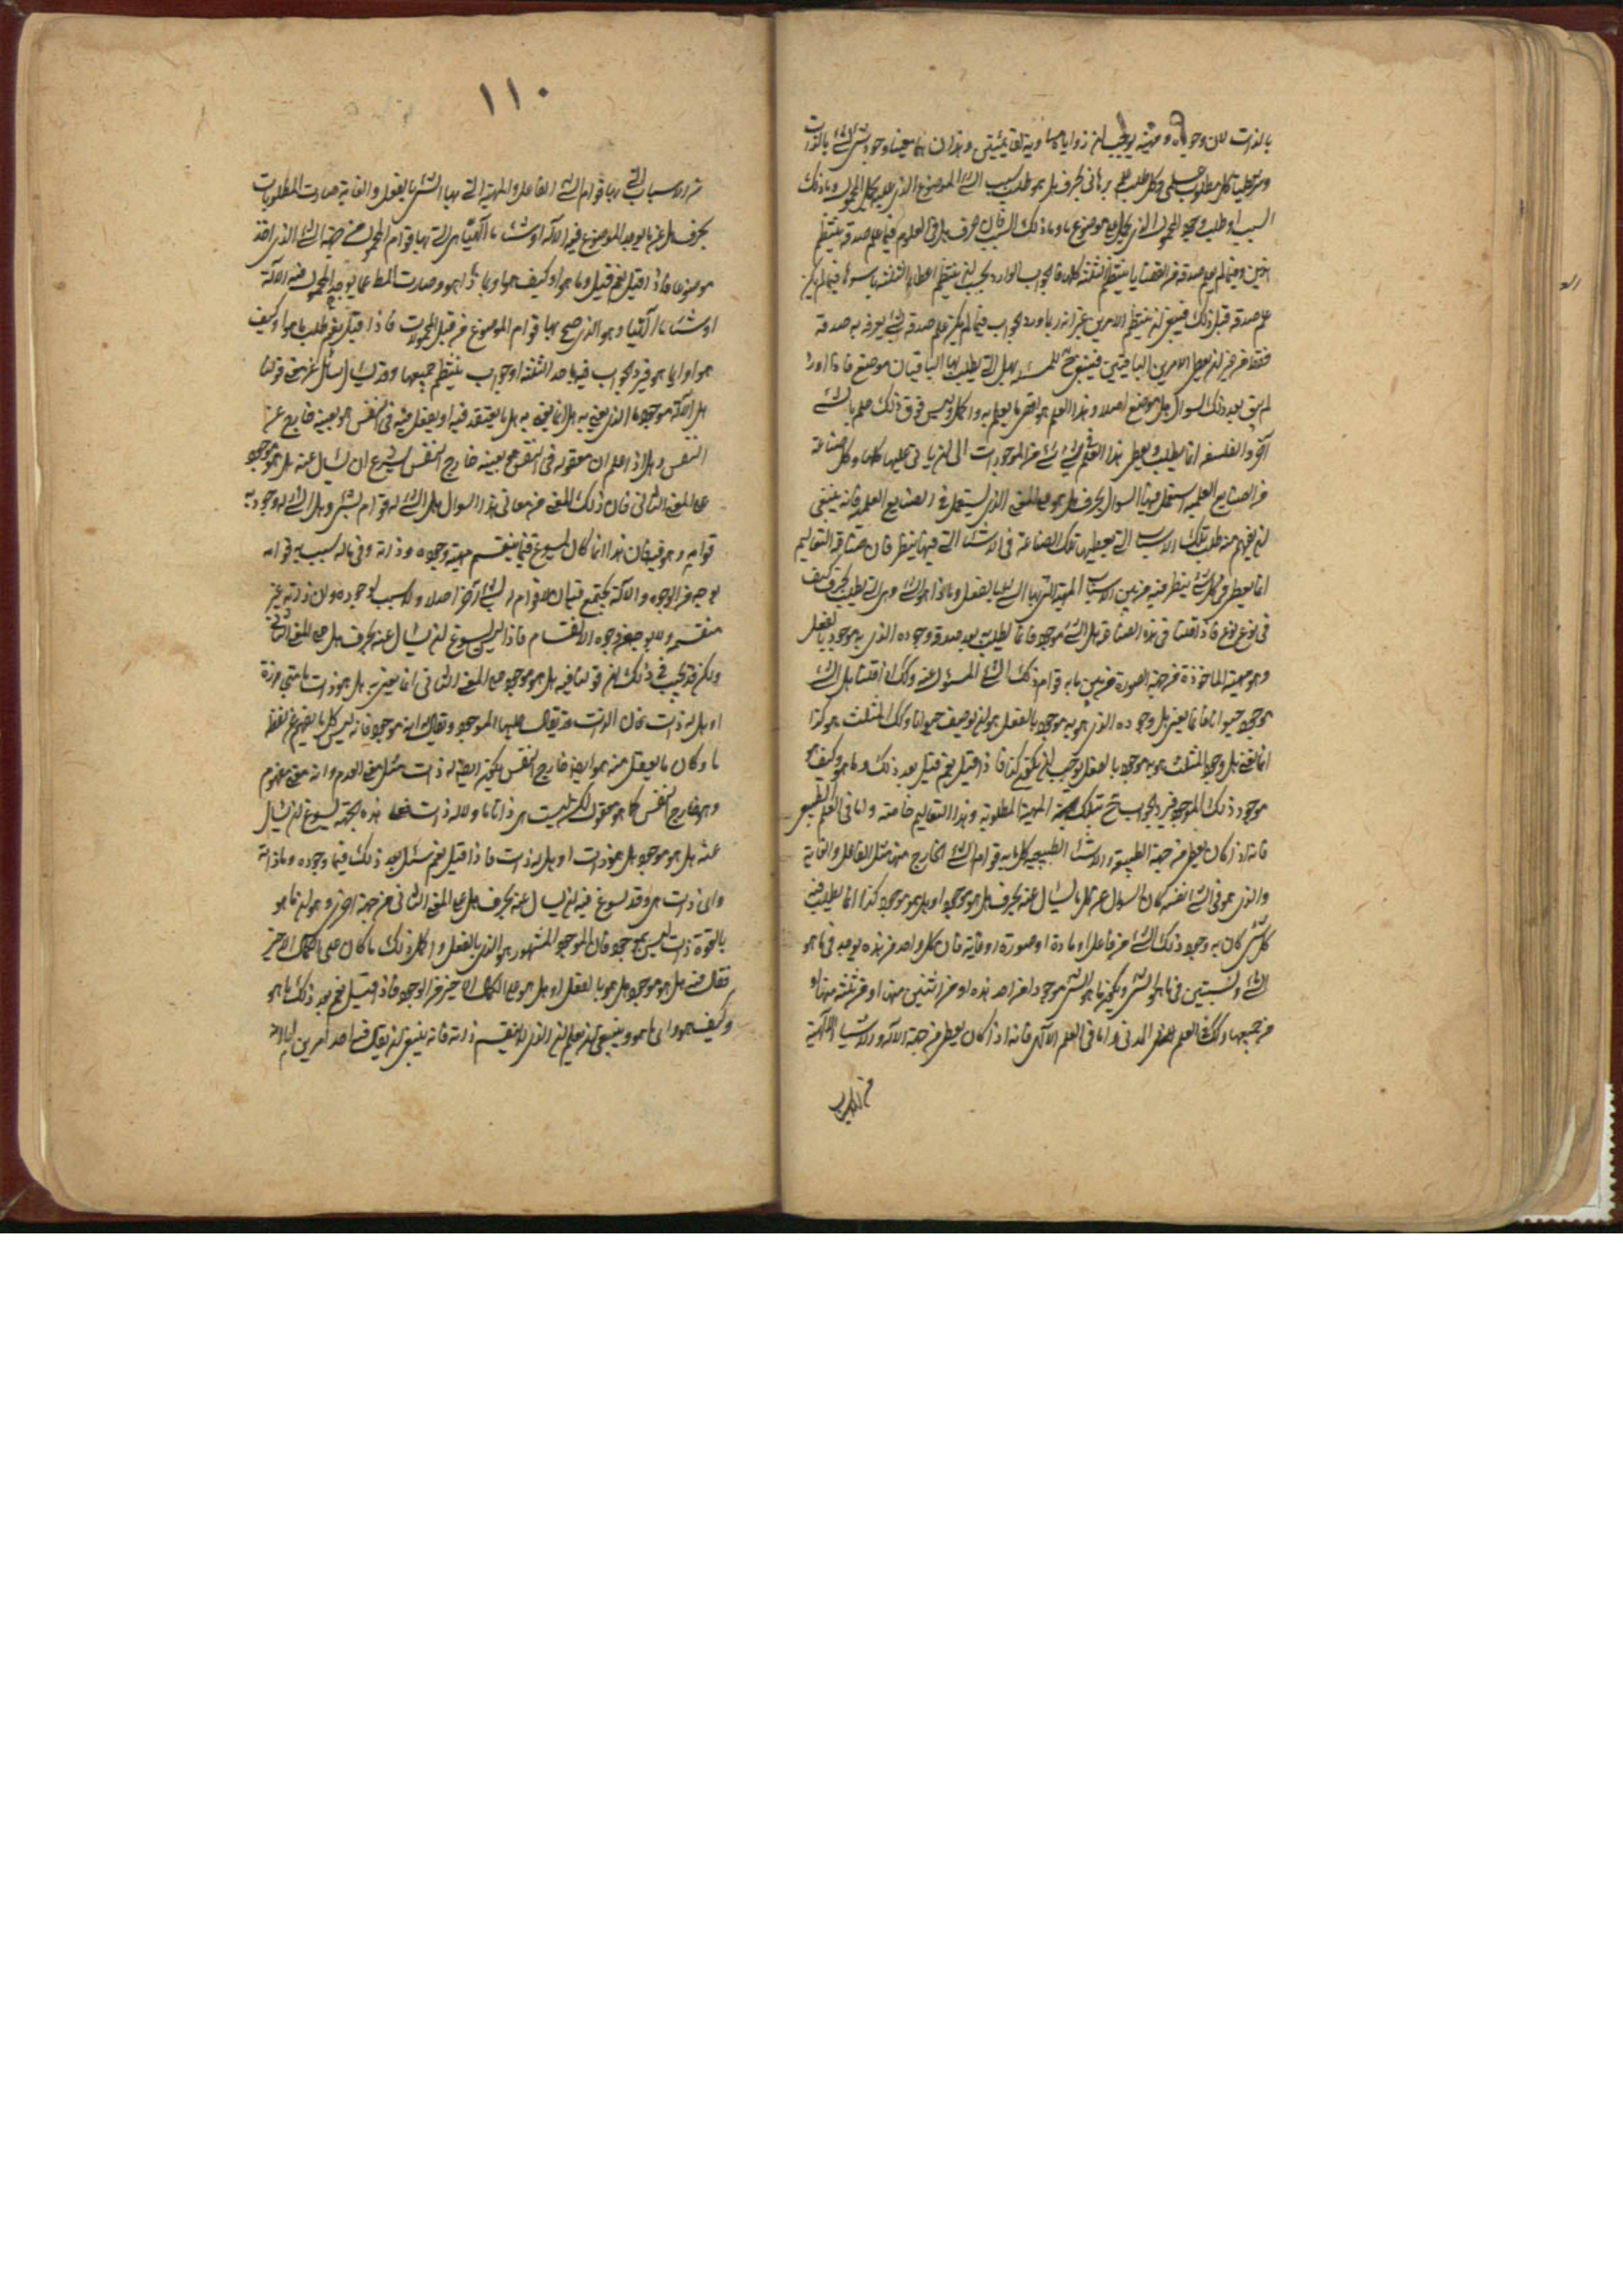 بالذات لان وجوده ومهيته يوجب ان زواياه مساوية لقائمتين وهذان هما معنيا وجود الشئ بالذات
وسوطليا كل مطلوب علمى وكل طلب علمى برهانى بحرف هل هو طلب سبب الشئ الموضوع الذى عليه يحمل المحمول وما ذلك
السبب او طلب وجود المحمول الذى يحمل على موضوع ما وما ذلك السبب فان حرف هل فى العلوم فيما علم صدقه ينتظم
اثنين وفيما لم يعلم صدقه من القضايا ينتظم الثلثة كلها فالجواب الوارد يجب ان ينتظم اعطاء الثلثة باسرها فيما لم يكن
علم صدقه قبل ذلك فينبغى ان ينتظم الامرين غير انه ربما ورد الجواب فيما لم يكن علم صدقه بشئ يعرف به صدقه
فقط من غير ان يعطى الامرين الباقيين فيبقى للمسئلة بهل التى يطلب بها الباقيان موضع فاذا اورد
لم يبق بعد ذلك لسؤال هل موضع اصلا وهذا العلم هو اقصى ما يعلم به واكمل وليس فوق ذلك علم بالشئ
آخر والفلسفة انما يطلب ويعطى هذا العلم فى شئ شئ من الموجودات الى ان ياتى عليها كلها وكل صناعة
من الصنايع العلمية استعمل فيها السؤال بحرف هل هو على المعنى الذى يستعمل فى الصنايع العلمية فانه ينبغى
ان يفهم منه طلب تلك الاسباب التى يعطيها تلك الصناعة فى الاشياء التى فيها ينظر فان صناعة التعاليم
انما يعطى فى كل شئ ينظر فيه من بين الاسباب المهية التى بها الشئ بالفعل وماذا هو الشئ وهى التى يطلب بحرف كيف
فى نوع نوع فاذا قلنا فى هذه الصناعة هل الشئ موجود فانما يطلب به بعد صدقه وجوده الذى به موجود بالفعل
وهو مهيته الماخوذة من جهة الصورة من بين ما به قوام ذلك الشئ المسئول عنه وكذلك اذا قلنا هل الشئ
موجود حيوانا فانما يعنى هل وجوده الذى هو به موجود بالفعل هو ان يوصف حيوانا وكذلك المثلث هو كذا
انما يعنى هل وجود المثلث هو به موجود بالفعل يوجب ان يكون كذا فاذا قيل نعم قيل بعد ذلك وما هو وكيف هو
موجود ذلك الموجود فيرد الجواب ح بتلك المهية المطلوبة وهذا فى التعاليم خاصة واما فى العلم الطبيعى
فانه اذ كان يعطى من جهة الطبيعة والاشياء الطبيعية كل ما به قوام الشئ الخارج منه مثل الفاعل والغاية
والذى هو فى الشئ نفسه كان السؤال عن كل ما يسال عنه بحرف هل هو موجود او هل هو موجود كذا انما يطلب فيه
كل شئ كان به وجود ذلك الشئ من فاعل او مادة او صورة او غاية فان كل واحد من هذه يوجد فى ما هو
الشئ وليستبين فى ما هو الشئ ويكون ما هو الشئ موجودا من احد هذه او من اثنين منها او من ثلثة منها او
من جميعها وكذلك العلم المدنى واما فى العلم الالهى فانه اذ كان يعطى من جهة الاله والاشياء الالهية
من الاسباب
١١٠
من الاسباب التى بها قوام الشئ الفاعل والمهية التى بها الشئ بالفعل والغاية صارت المطلوبات
بحرف هل عن ما يوجد الموضوع فيه الاله او شئ ما الهيا هى التى بها قوام المحمول من جهة الشئ الذى اخذ
موضوعا فاذا قيل نعم قيل وما هو او كيف هو او بماذا هو وصارت المطلب عما يوجد المحمول فيه الاله
او شئ ما الهيا وهو الذى صح بها قوام الموضوع من قبل المحمولات فاذا قيل نعم طلب ما هو او كيف
هو او ايما هو فيرد الجواب فيه باحد الثلثة او جواب ينتظم جميعها وقد يسال سائل عن معنى قولنا
هل الاله موجود ما الذى يعنى به هل انما يعنى به هل ما يعتقد فيه او يعقل منه فى النفس هو بعينه خارج عن
النفس وهل اذا علم ان معقوله فى النفس هو بعينه خارج النفس يسوغ ان يسال عنه هل هو موجود
على المعنى الثانى فان ذلك المعنى من معانى هذا السؤال هل الشئ له قوام بشئ وهل الشئ له وجود به
قوامه وهو فيه فان هذا انما كان يسوغ فيما ينقسم مهيته وجوده وذاته وفى ماله سبب به قوامه
بوجه من الوجوه والاله يجتمع فيه ان لا قوام له بشئ آخر اصلا ولا سبب لوجوده ولان ذاته غير
منقسم ولا بوجه من وجوه الانقسام فاذا ليس يسوغ ان يسال عنه بحرف هل على المعنى الثانى
ولكن قد يجب فى ذلك ان قولنا فيه هل هو موجود على المعنى الثانى انما يعنى به هل هو ذات ما منحازة
او هل له ذات فان الذات قد يقال عليها الموجود ويقال انه موجود فانه ليس كل ما يفهم عن لفظ
ما وكان ما يعقل منه هو ايضا خارج النفس يكون ايضا له ذات مثل معنى العدم وانه معنى مفهوم
وهو خارج النفس كما هو معقول لكن ليست هى ذاتا ما ولا له ذات فعلى هذه الجهة يسوغ ان يسال
عنه هل هو موجود هل هو ذات او هل له ذات فاذا قيل نعم سئل بعد ذلك فما وجوده وما ذاته
واى ذات هى وقد يسوغ فيه ان يسال عنه بحرف هل على المعنى الثانى من جهة اخرى وهو ان ما هو
بالقوة ذات ليس بموجود فان الموجود المشهور هو الذى بالفعل واكمل ذلك ما كان على الكمال الاخير
فقلت فيه هل هو موجود هل هو بالفعل او هل هو على الكمال الاخير من الوجود فاذا قيل نعم بعد ذلك ما هو
وكيف هو واى ما هو وينبغى ان يعلم ان الذى لا ينقسم ذاته فانه ينبغى ان يقال فيه احد امرين اما انه